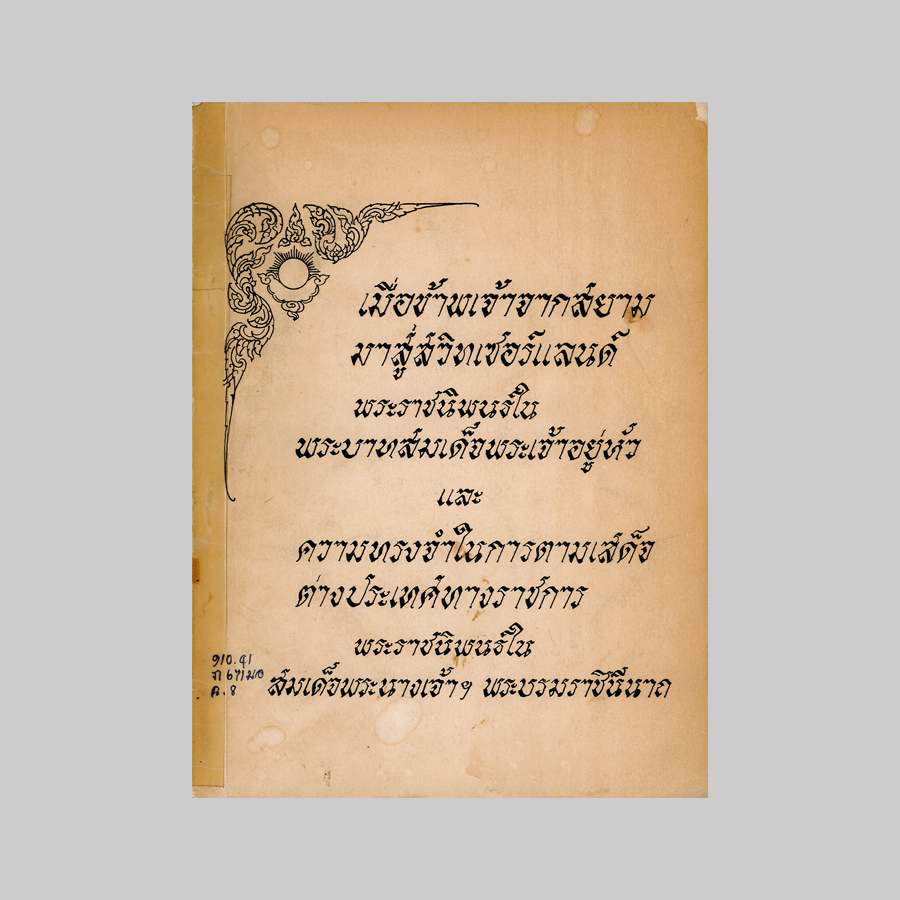 เมื่อข้าพเจ้าจากสยาม
มาสู่สวิทเซอร์แลนด์
พระราชนิพนธ์ใน
พระบาทสมเด็จพระเจ้าอยู่หัว
และ
ความทรงจำในการตามเสด็จ
ต่างประเทศทางราชการ
พระราชนิพนธ์ใน
สมเด็จพระนางเจ้าฯ พระบรมราชินีนาถ
910.41
ภ671มอ
ฉ.8